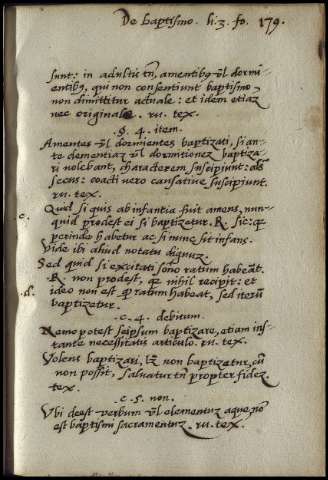 De baptismo. li. 3. fo. 179.
sunt: in adultis tñ, amentibꝯ vl dormi-
entibꝯ, qui non consentiunt baptismo,
non dimittitur actuale: et idem etiaz
nec originale. ru. tex.
§. 4. item.
Amentes vl dormientes baptizati, si an-
te dementiaz vl dormitionez baptiza-
ri nolebant, characterem suscipiunt: als
secus: coacti vero causative suscipiunt.
ru. tex.
c. Quid si quis ab infantia fuit amens, nun-
quid prodest ei si baptizetur. R. sic: q
perinde habetur ac si nunc sit infans.
Vide ibi aliud notatu dignuz.
Sed quid si excitati sono ratum habeãt.
d. R. non prodest, qz nihil recipit: et
ideo non est qz ratum habeat, sed iterũ
baptizetur.
c. 4. debitum.
Nemo potest seipsum baptizare, etiam ins-
tante necessitatis articulo. ru. tex.
Volens baptizari, lz non baptizetur, cũ
non possit, salvatur tñ propter fidez.
tex.
c. 5. non.
Vbi deest verbum vl elementuz aque, nõ
est baptismi sacramentuz. ru. tex.